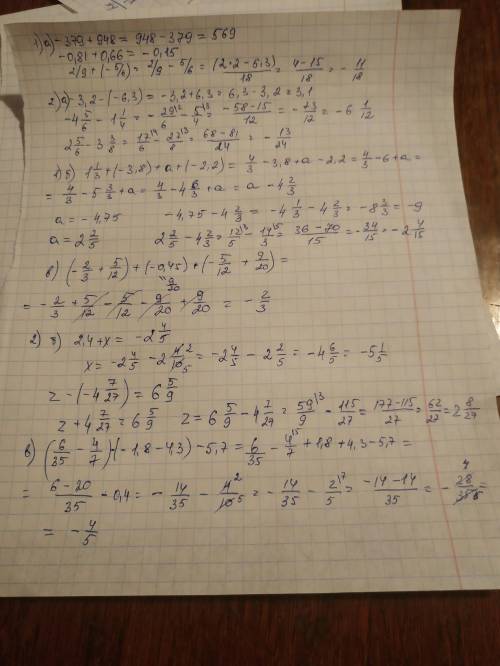 1) а) -379 + 948 = 948 - 379 = 569
-0,81 + 0,66 = -0,15
2/9 + (-5/6) = 2/9 - 5/6 = (2·2-5·3)/18 = 4-15/18 = - 11/18
2) а) -3,2 - (-6,3) = -3,2 + 6,3 = 6,3 - 3,2 = 3,1
-4 5/6 - 1 1/4 = - 29/6 - 5/4 = -58-15/12 = - 73/12 = -6 1/12
2 5/6 - 3 3/8 = 17/6 - 27/8 = 68-81/24 = - 13/24
1) б) 1 1/3 + (-3,8) + a + (-2,2) = 4/3 - 3,8 + a - 2,2 = 4/3 - 6 + a =
= 4/3 - 5 3/3 + a = 4/3 - 4 6/3 + a = a - 4 2/3
a = -4,75 -4,75 - 4 2/3 = -4 1/3 - 4 2/3 = -8 3/3 = -9
a = 2 2/5 2 2/5 - 4 2/3 = 12/5 - 14/3 = 36-70/15 = - 34/15 = -2 4/15
в) (-2/3 + 5/12) + (-0,45) + (-5/12 + 9/20) =
9/20
= - 2/3 + 5/12 - 5/12 - 9/20 + 9/20 = - 2/3
2) б) 2,4 + x = -2 4/5
x = -2 4/5 - 2 4/10 = -2 4/5 - 2 2/5 = -4 6/5 = -5 1/5
z - (-4 7/27) = 6 5/9
z + 4 7/27 = 6 5/9 z = 6 5/9 - 4 7/27 = 59/9 - 115/27 = 177-115/27 = 62/27 = 2 8/27
в) (6/35 - 4/7) - (-1,8 - 4,3) - 5,7 = 6/35 - 4/7 + 1,8 + 4,3 - 5,7 =
= 6-20/35 - 0,4 = - 14/35 - 4/10 = - 14/35 - 2/5 = -14-14/35 = - 28/35 =
= - 4/5